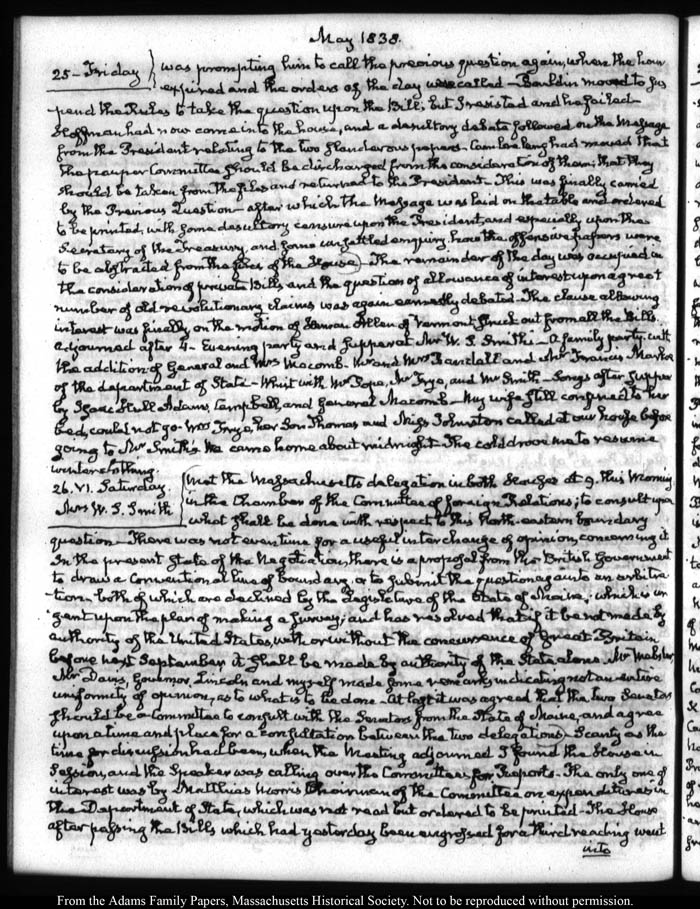 May 1838.
25 - Friday was prompting him to call the previous question again, when the hour
expired and the orders of the day were called - Bouldin moved to sus
pend the Rules to take the question upon the Bill; but I resisted and he failed -
Hoffman had now come into the house, and a desultory debate followed on the Message
from the President relating to the two slanderous papers - Cambreleng had moved that
the pauper Committee should be discharged from the consideration of them; that they
should be taken from the files and returned to the President - This was finally carried
by the Previous Question - after which the Message was laid on the table and ordered
to be printed, with some desultory censure upon the President, and especially upon the
Secretary of the Treasury, and some unsettled enquiry how the offensive papers were
to be abstracted from the files of the House - The remainder of the day was occupied in
the consideration of private Bills and the question of allowance of interest upon a great
number of old revolutionary claims was again earnestly debated - The clause allowing
interest was finally on the motion of Heman Allen of Vermont struck out from all the Bills.
adjourned after 4 - Evening party and supper at Mr W. S. Smith's - A family party, with
the addition of General and Mrs Macomb - Mr and Mrs Randall and Mr Francis Markoe
of the department of State - Whist with Mr Pope, Mr Frye, and Mr Smith - Songs after supper
by Isaac Hull Adams, Campbell, and General Macomb - My wife still confined to her
bed, could not go - Mrs Frye, her Son Thomas and Miss Johnston called at our house before
going to Mr Smith's. We came home about midnight - The cold drove me to resume
winter clothing.
26. VI. Saturday Met the Massachusetts delegation in both Houses at 9. this Morning
Mrs W. S. Smith in the Chamber of the Committee of foreign Relations; to consult upon
what shall be done with respect to this North-eastern boundary
question - There was not even time for a useful interchange of opinion, concerning it
In the present state of the Negotiation, there is a proposal from the British Government
to draw a Conventional line of boundary, or to submit the question again to an arbitra
tion - both of which are declined by the Legislature of the State of Maine; which is ur
gent upon the plan of making a survey; and has resolved that if it be not made by
authority of the United States, with or without the concurrence of Great Britain
before next September it shall be made by authority of the State alone. Mr Webster,
Mr Davis, Governor Lincoln and myself made some remarks, indicating not an entire
uniformity of opinion, as to what is to be done - At last it was agreed that the two Senators
should be a Committee to consult with the Senators from the State of Maine, and agree
upon a time and place for a consultation between the two delegations - Scanty as the
time for discussion had been, when the Meeting adjourned I found the House in
Session, and the Speaker was calling over the Committees for Reports - The only one of
interest was by Matthias Morris Chairman of the Committee on expenditures in
the Department of State, which was not read but ordered to be printed - The House
after passing the Bills which had yesterday been engrossed for a third reading went
into
From the Adams Family Papers, Massachusetts Historical Society. Not to be reproduced without permission.